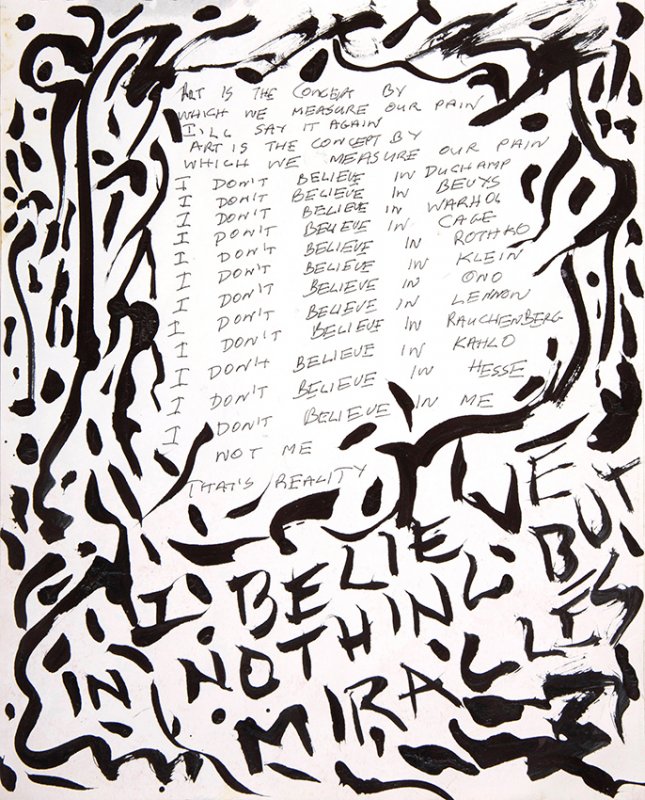 ART IS THE CONCEPT BY
WHICH WE MEASURE OUR PAIN
I'LL SAY IT AGAIN
ART IS THE CONCEPT BY
WHICH WE MEASURE OUR PAIN
I DON'T BELIEVE IN DUCHAMP
I DON'T BELIEVE IN BEUYS
I DON'T BELIEVE IN WARHOL
I DON'T BELIEVE IN CAGE
I DON'T BELIEVE IN ROTHKO
I DON'T BELIEVE IN KLEIN
I DON'T BELIEVE IN ONO
I DON'T BELIEVE IN LENNON
I DON'T BELIEVE IN RAUCHENBERG
I DON'T BELIEVE IN KAHLO
I DON'T BELIEVE IN HESSE
I DON'T BELIEVE IN ME
NOT ME
THAT'S REALITY
I BELIEVE
IN NOTHING BUT
MIRACLES